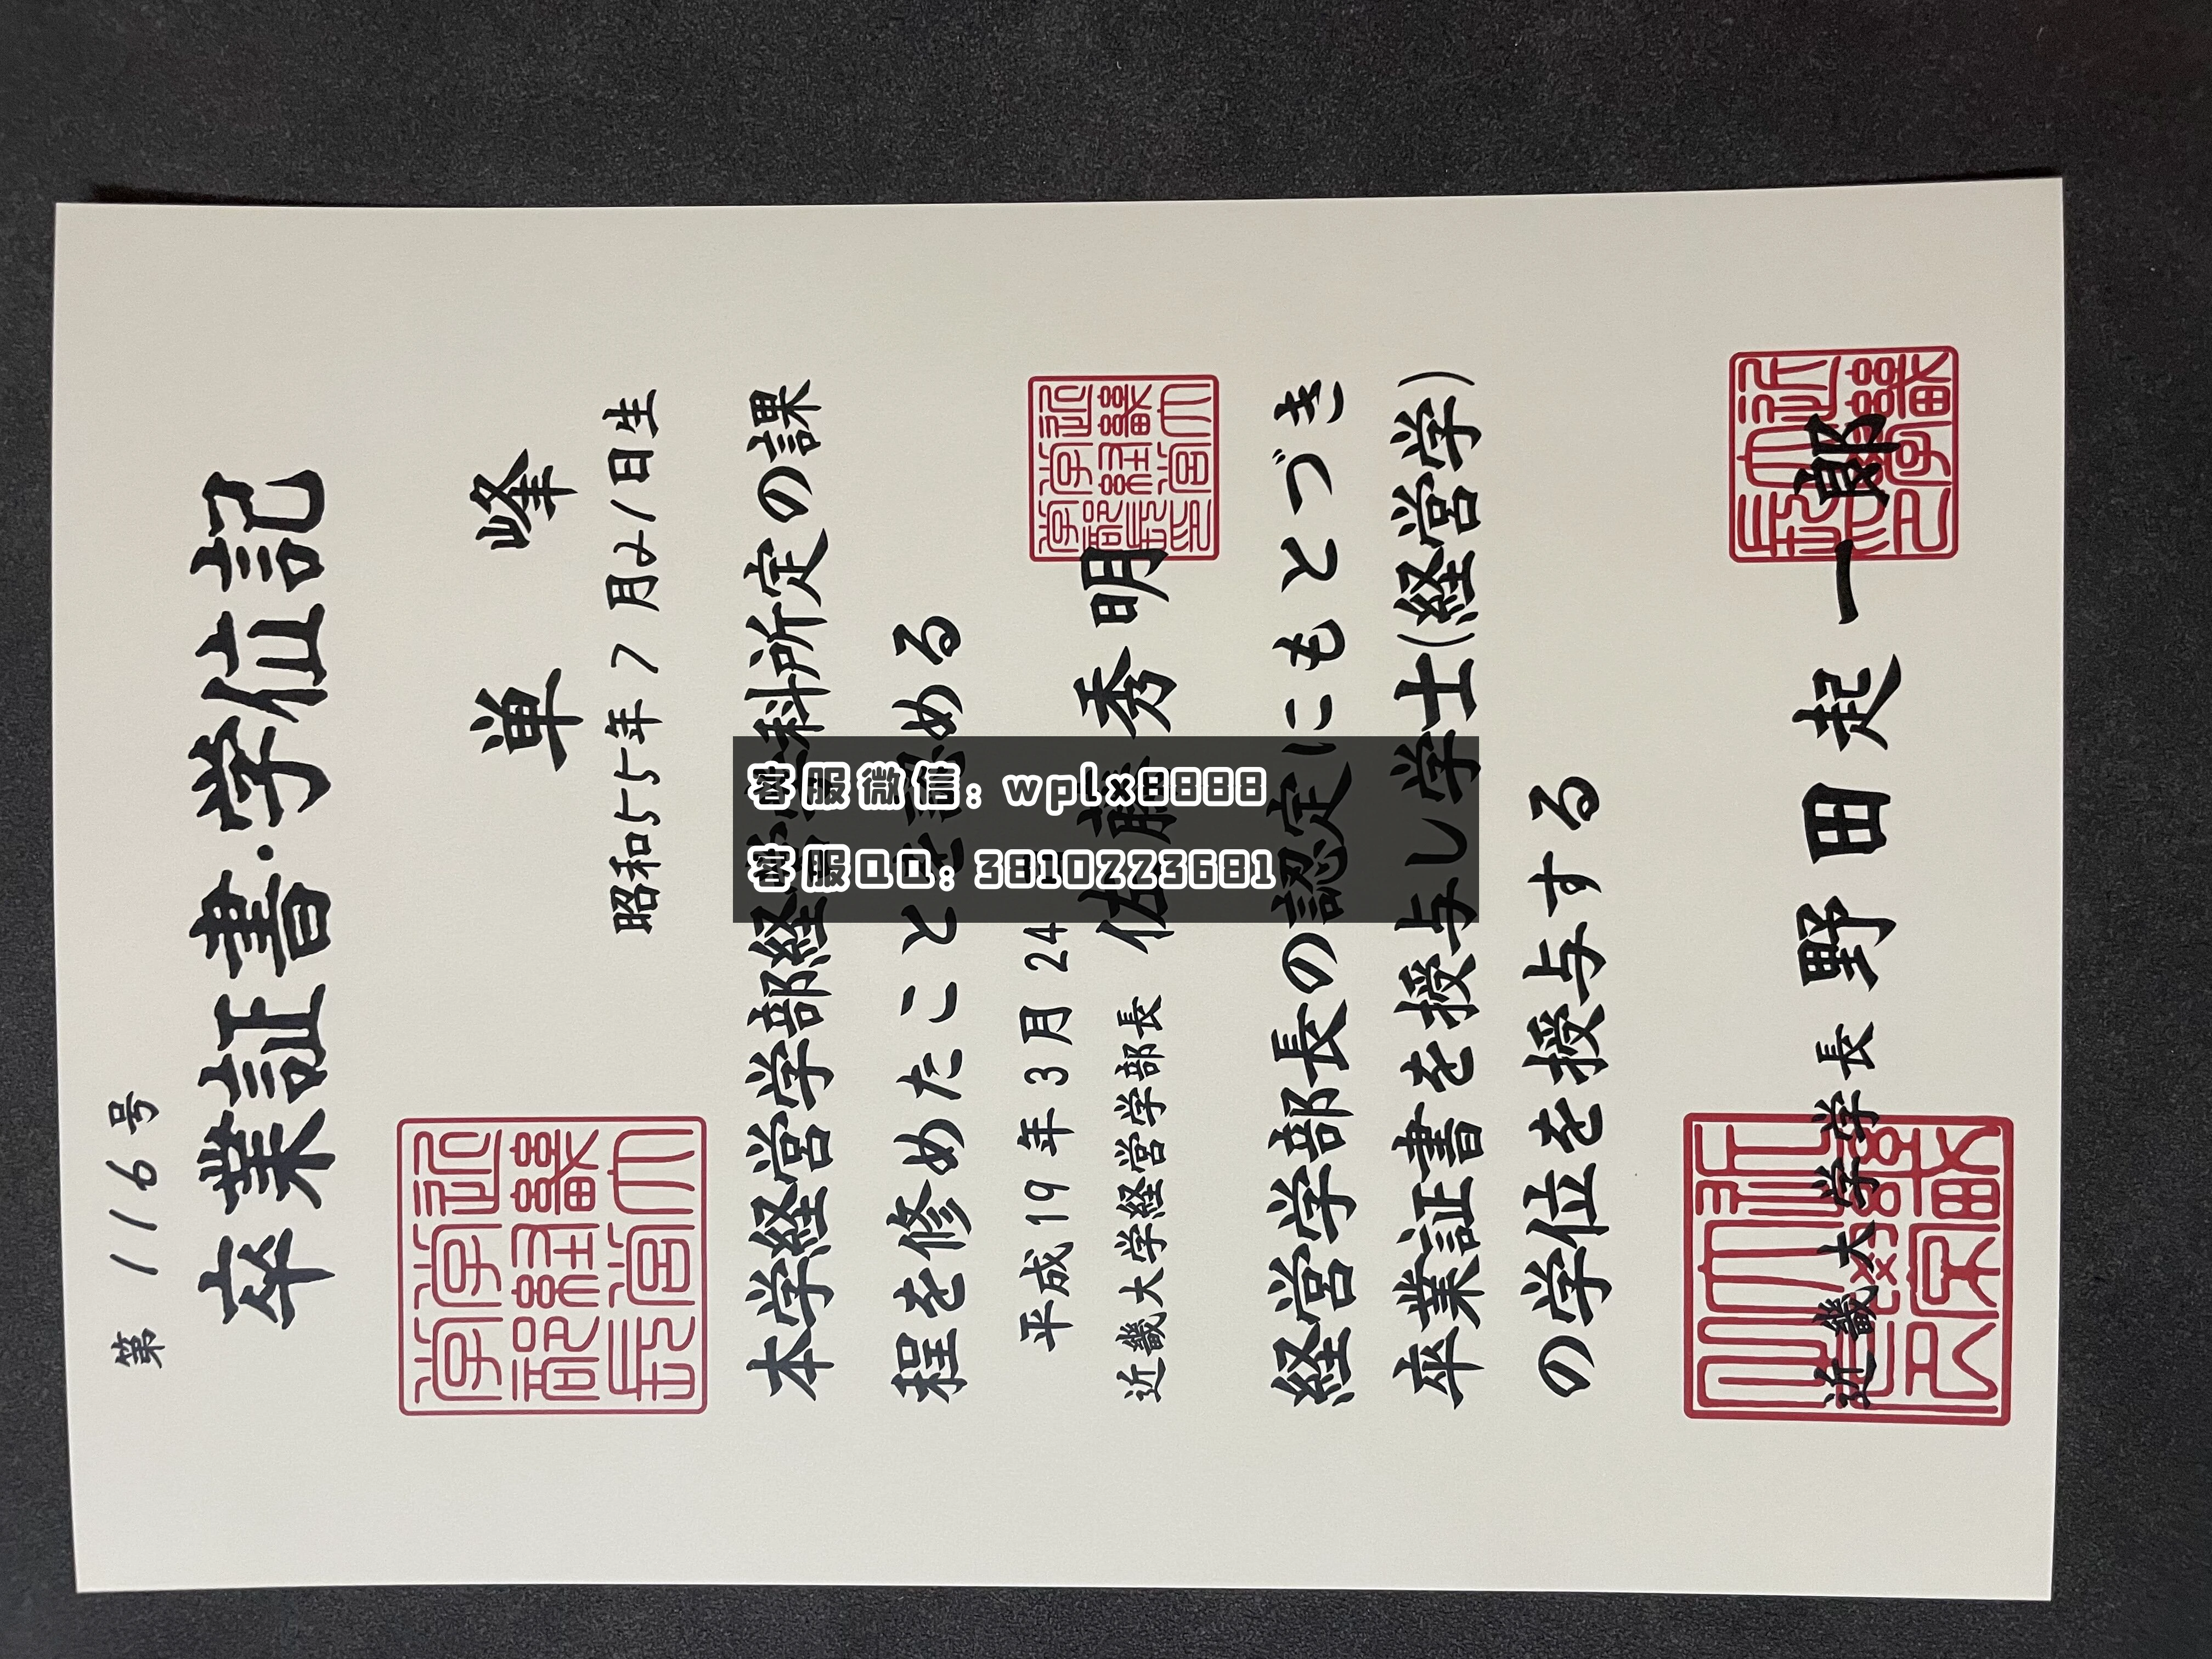 第 116 号
卒業証書・学位記
単 峰
昭和55年7月21日生
本学経営学部経営学科所定の課
程を修めたことを認める
平成19年3月24
近畿大学経営学部長 佐藤秀明
経営学部長の認定にもとづき
卒業証書を授与し学士(経営学)
の学位を授与する
近畿大学学長 野田起一郎
客服微信: wplx8888
客服QQ: 3810223681